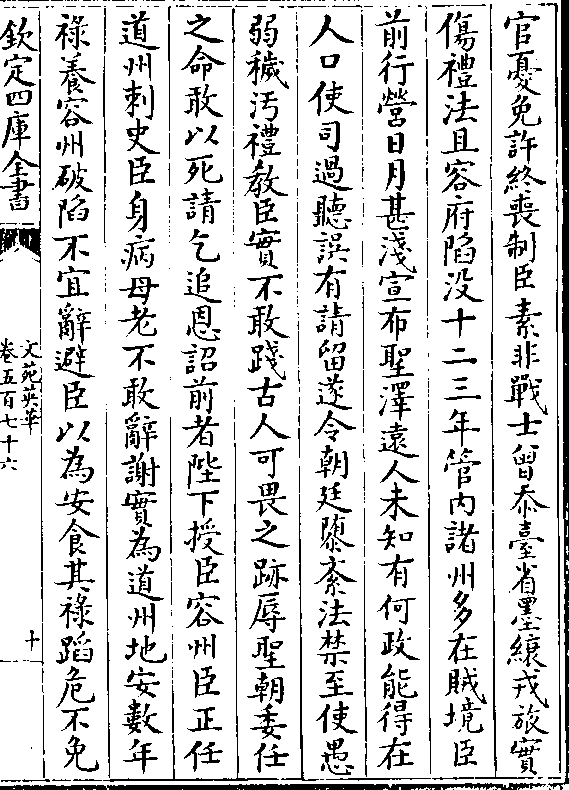 官憂免許終喪制臣素非戰士曾忝臺省墨縗戎旅實
傷禮法且容府陷没十二三年管内諸州多在賊境臣
前行營日月甚淺宣布聖澤逺人未知有何政能得在
人口使司過聽誤有請留遂令朝廷隳紊法禁至使愚
弱穢汚禮教臣實不敢踐古人可畏之跡辱聖朝委任
之命敢以死請乞追恩詔前者陛下授臣容州臣正任
道州刺史臣身病母老不敢辭謝實為道州地安數年
禄養容州破陷不宜辭避臣以為安食其禄蹈危不免
欽定四庫全書
文苑英華
卷五百七十六
十